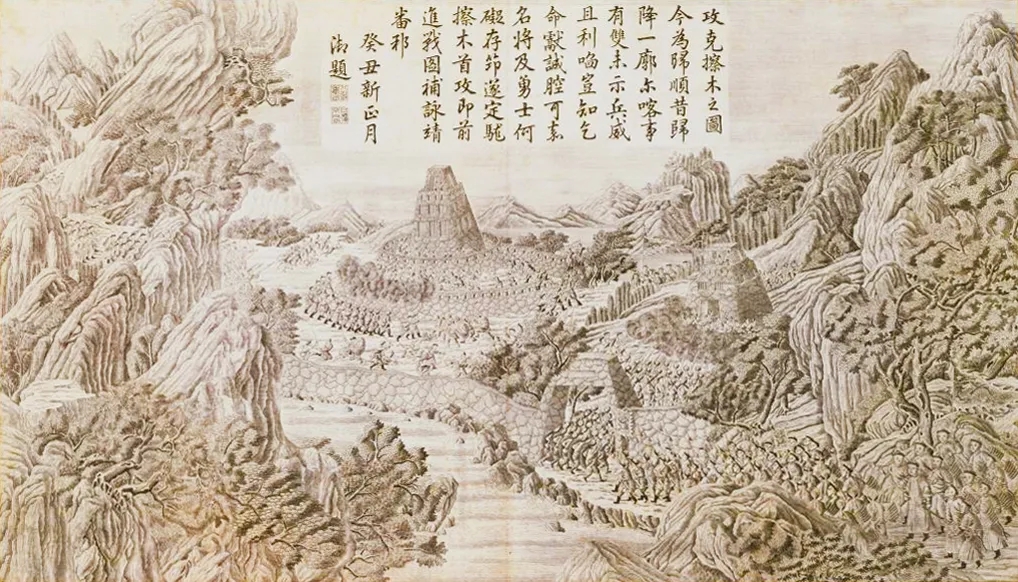 攻克擦木之圖
今為歸順昔歸
降一廓尔喀事
有雙未示兵威
且利啗豈知乞
命獻誠腔可嘉
名將及勇士何
礙存笻遂定駹
擦木首攻即前
進戰圖補詠靖
番邦
癸丑新正月
御題